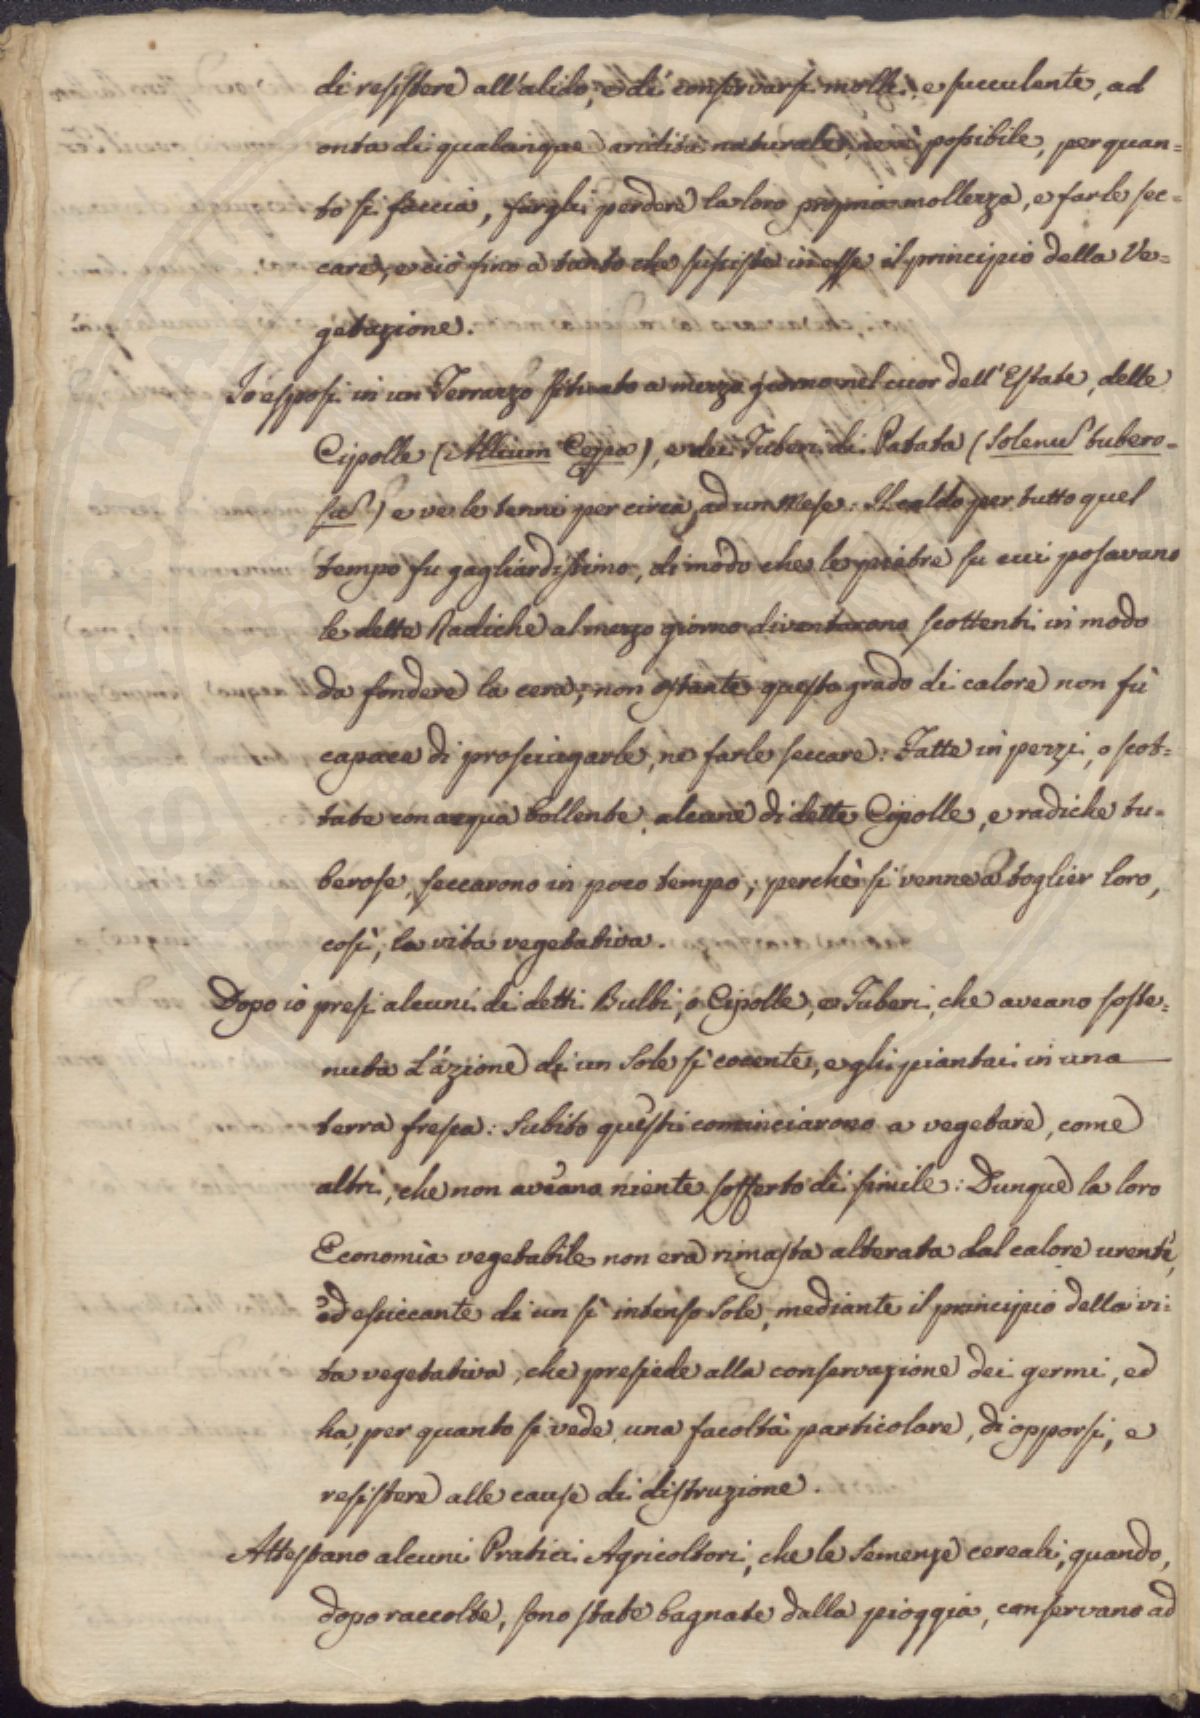 di resistere all'alido, e di conservarsi molli, e succulente, ad
onta di qualunque aridità naturale, ne è possibile, per quan=
to si faccia, fargli perdere la loro propria mollezza, e farle sec=
care, e ciò fino a tanto che susiste in esse il principio della Ve=
getazione.
Io esposi in un Terrazzo situato a mezzo giorno nel cuor dell'Estate, delle
Cipolle (Allium Ceppa), e dei Tuberi di Patata (Solenus tubero=
sus) e ve le tenni per circa, ad un Mese: Il caldo per tutto quel
tempo fu gagliardissimo, di modo che le pietre su cui posavano
le dette Radiche al mezzo giorno diventarono scottenti in modo
da fondere la cera; non ostante questo grado di calore non fù
capace di prosciugarle, ne farle seccare: Fatte in pezzi, o scot=
tate con acqua bollente, alcune di dette Cipolle, e radiche tu=
berose, seccarono in poco tempo; perchè si venne a toglier loro,
così, la vita vegetativa.
Dopo io presi alcuni di detti Bulbi, o Cipolle, e Tuberi, che aveano soste=
nuta L'azione di un Sole sì cocente, e gli piantai in una
terra fresca: Subito questi cominciarono a vegetare, come
altri, che non aveano niente sofferto di simile: Dunque la loro
Economia vegetabile non era rimasta alterata dal calore urente,
ed essiccante di un sì intenso Sole, mediante il principio della vi=
ta vegetativa, che presiede alla conservazione dei germi, ed
ha, per quanto si vede, una facoltà particolare, di opporsi, e
resistere alle cause di distruzione.
Attestano alcuni Pratici Agricoltori, che le Semenze cereali, quando,
dopo raccolte, sono state bagnate dalla pioggia, conservano ad